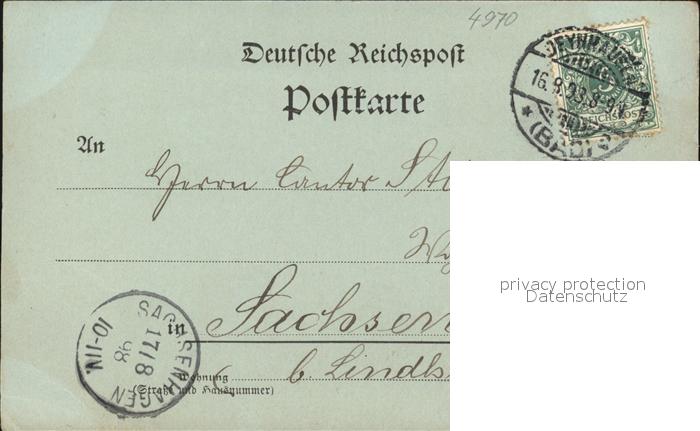 4970
Deutsche Reichspost
Postkarte
OEYNHAUSEN
16.8.98.8-9V.
* (BAD) *
REICHSPOST
An
Herrn Cantor
privacy protection
Datenschutz
in Sachsen
SACHSENHAGEN
17/8
98
10-11N.
b. Lindh
Wohnung
(Straße und Hausnummer)